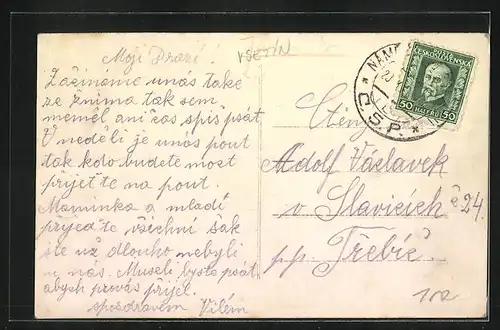 Moji Drazí!
VSETÍN
Začínáme unás take
ze žnima tak sem
meměl ani čas spiš psát
V neděli je unás pout
tak kdo budete most
přijeť te na pout.
Maminka a mladí
přijeďte všichni šak
ste už dlouho nebyli
u nás. Museli byste psát
abych pro vás přijel.
spozdravem Vilém
NÁMĚ
ČESKOSLOVENSKÁ
50 HALÉŘŮ 50
* Č.S.P. *
Ctěný
Adolf Václavek
v Slavicích č 24.
p.p. Třebíč.